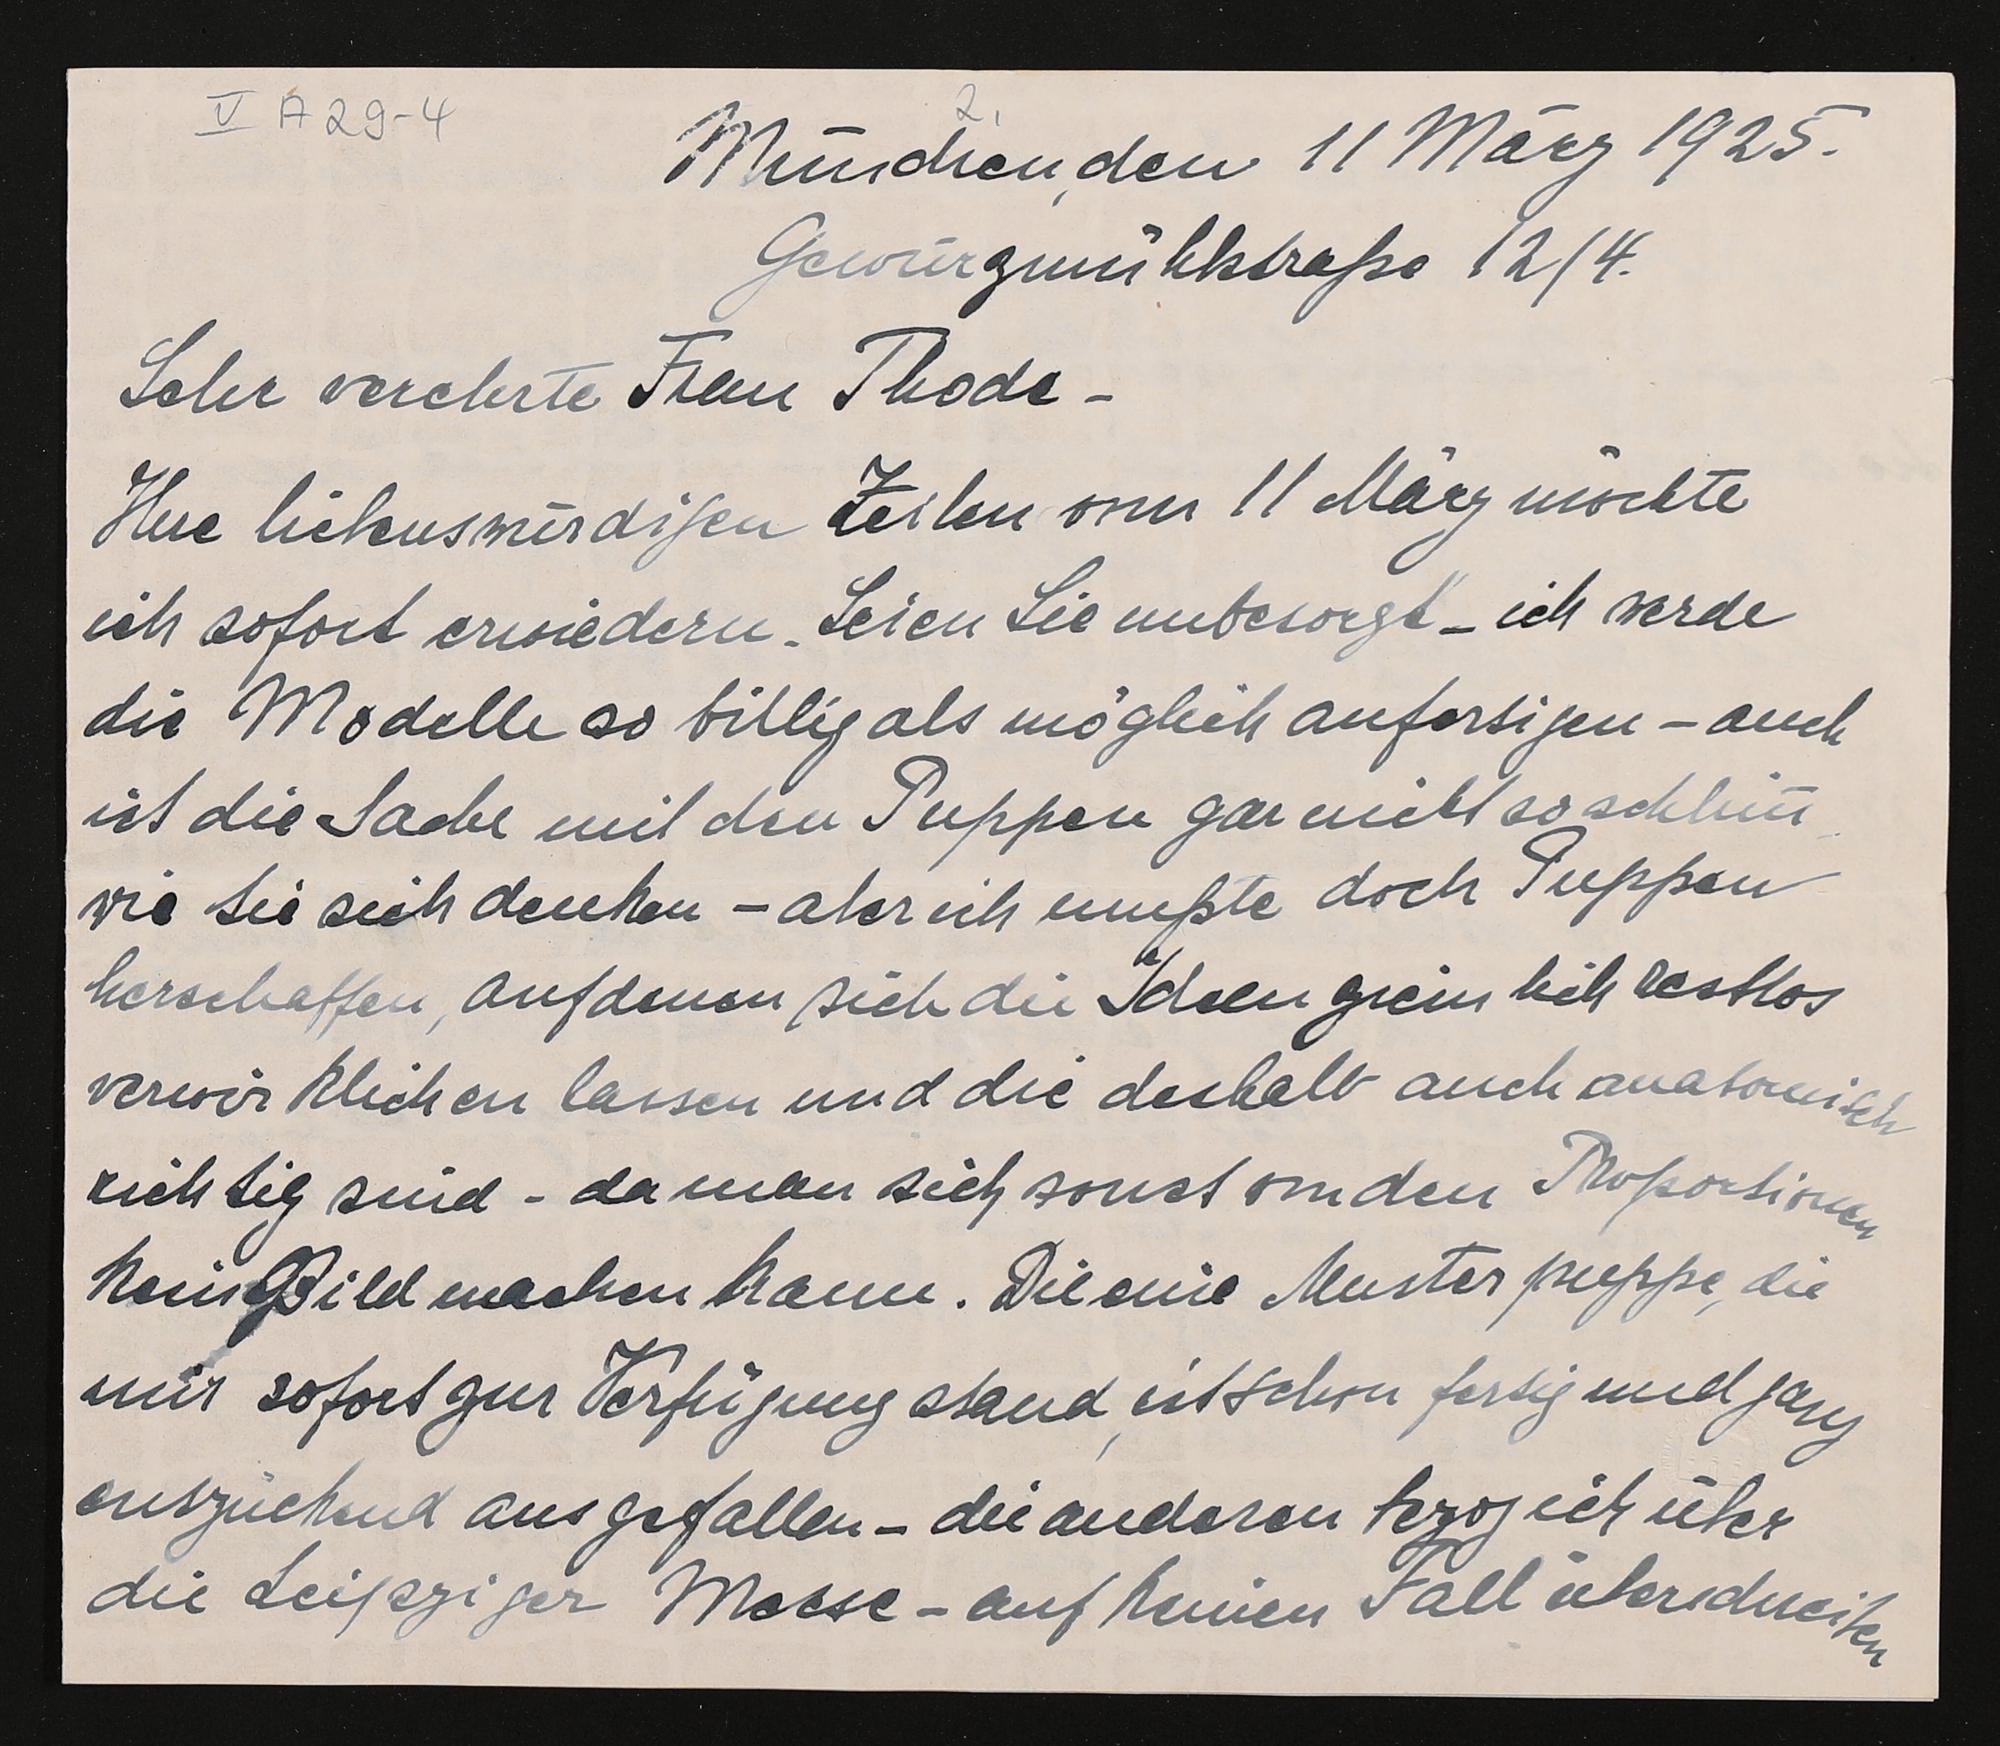 V A 29-4
2.
München, den 11 März 1925.
Gewürzmühlstraße 12/4.
Sehr verehrte Frau Thode -
Ihre liebenswürdigen Zeilen vom 11 März möchte
ich sofort erwiedern. Seien Sie unbesorgt - ich werde
die Modelle so billig als möglich anfertigen - auch
ist die Sache mit den Puppen gar nicht so schlim̅
wie Sie sich denken - aber ich mußte doch Puppen
herschaffen, auf denen sich die Ideen ziemlich restlos
verwirklichen lassen und die deshalb auch anatomisch
richtig sind - da man sich sonst von den Proportionen
kein Bild machen kann. Die eine Musterpuppe, die
mir sofort zur Verfügung stand, ist schon fertig und ganz
entzückend ausgefallen - die anderen bezog ich über
die Leipziger Messe - auf keinen Fall überschreiten